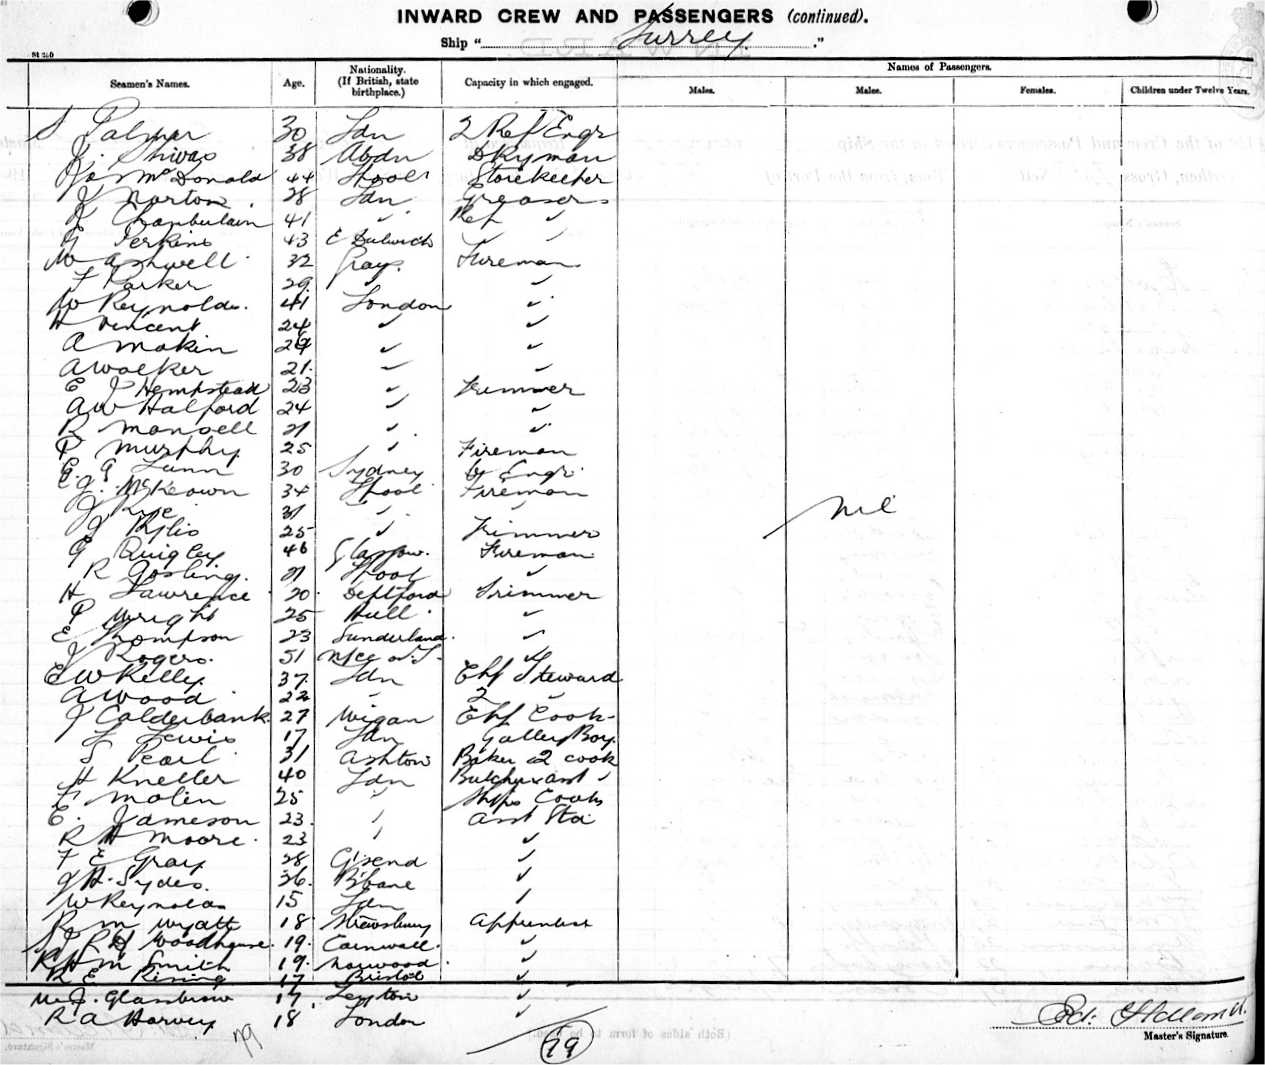 INWARD CREW AND PASSENGERS (continued).
Ship "Surrey."
Seamen's Names. Age. Nationality. (If British, state birthplace.) Capacity in which engaged. Names of Passengers.
Males. Males. Females. Children under Twelve Years.
S Palmer 30 Ldn 2 Ref Engr
J. Shivas 38 Abdn Dkyman
Jas McDonald 44 L'pool Storekeeper
J Norton. 28 Ldn Greaser
J Chamberlain 41 " Ref "
G Perkins 43 E Dulwich " "
W Ashwell 32 Grays. Fireman
F Parker 29 " "
W Reynolds. 41 London "
H Vincent 24 " "
A Makin 29 " "
A Walker 21. " "
E J Hempstead 23 " Trimmer
A W Halford 24 " "
R Mansell 21 " "
P Murphy 25 " Fireman
E G Lunn 30 Sydney Engr
E J. McKeown 34 L'pool Fireman
J 31 " "
J 25 " Trimmer
G Quigley 46 Glasgow. Fireman
R Gosling. 21 L'pool "
H Lawrence 20 Deptford Trimmer
P Wright 25 Hull "
E Thompson 23 Sunderland. "
J Rogers. 51 "
E W Kelly 37 Ldn Chf Steward
A Wood 22 " 2 "
J Calderbank 27 Wigan Chf Cook
L Lewis 17 Ldn Galley Boy.
S Pearl 31 Ashton Baker & 2 cook
H Kneller 40 Ldn Butcher & asst "
F Malin 25 " Ships Cook
E. Jameson 23. " Asst Std
R H Moore 23 " "
F E Gray 28 G'send "
J H. Sydes. 36. B'bane "
W Reynolds 15 Ldn "
R M Wyatt 18 Shrewsbury Apprentice
R H Woodhouse. 19. Cornwall. "
R H M Smith 19. Norwood. "
R E Rising 17 Bristol "
W. J. Glasbrow 17 Leyton "
R A Harvey 18 London "
Nil
79
99
Master's Signature.